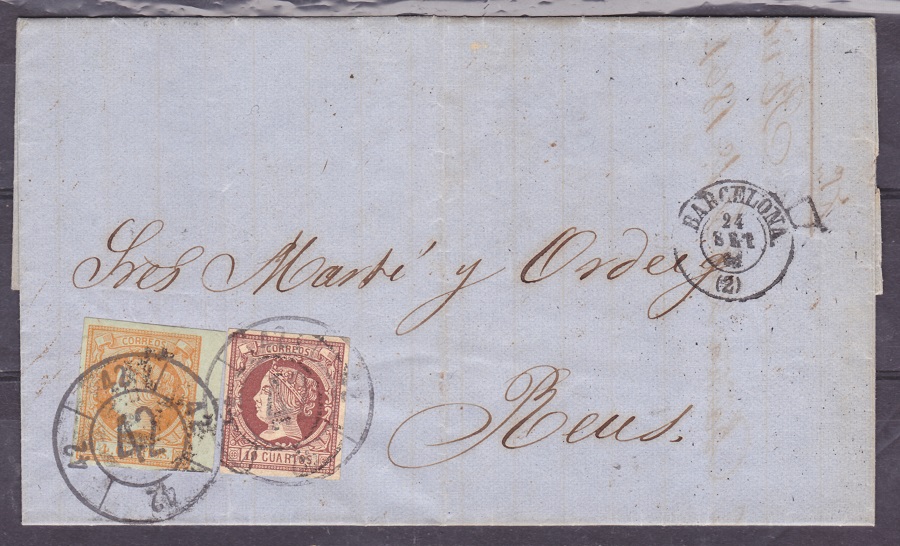 BARCELONA
24
SET
(2)
Sres Martí y Ordeig
Reus.
CORREOS
42
42
42
CORREOS
19 CUARTOS